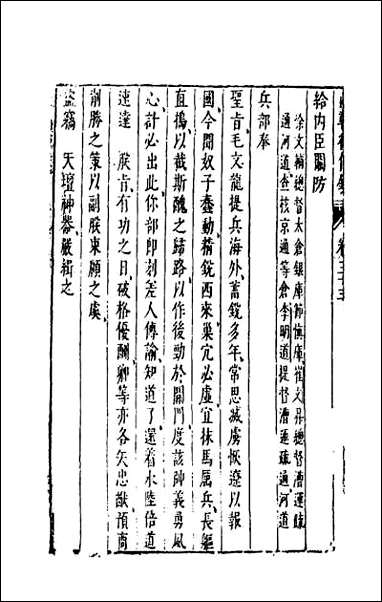 卷三十五
給內臣關防
徐文輔總督太倉銀庫節慎庫崔文昇總督漕運疏
通河道查核京通等倉李明道提督漕運疏通河道
兵部奉
聖旨毛文龍提兵海外蓄銳多年常思滅虜恢遼以報
國今聞奴子蠢動精銳西來巢穴必虛宜秣馬厲兵長驅
直搗以截斯醜之歸路以作後勁於關門度該帥義勇夙
心計必出此你部即刻差人傳諭知道了還着水陸倍道
速達 朕旨有功之日破格優酬卿等亦各矢忠猷預商
制勝之策以副朕東顧之虞
盜竊 天壇神器嚴緝之